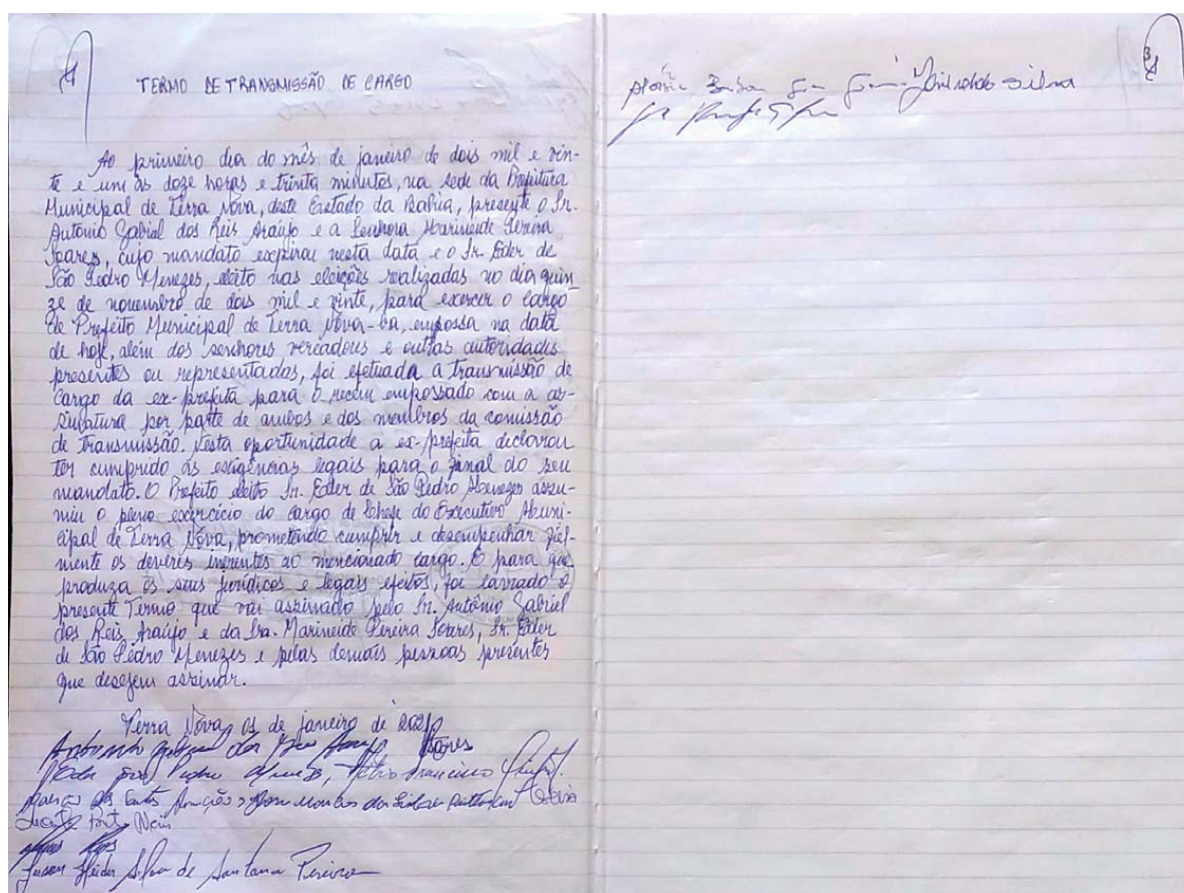 TERMO DE TRANSMISSÃO DE CARGO
Ao primeiro dia do mês de janeiro de dois mil e vin-
te e um às doze horas e trinta minutos, na sede da Prefeitura
Municipal de Terra Nova, deste Estado da Bahia, presente o Sr.
Antonio Gabriel dos Reis Araújo e a Senhora Marineide Pereira
Soares, cujo mandato expirou nesta data e o Sr. Eder de
São Pedro Menezes, eleito nas eleições realizadas no dia quin-
ze de novembro de dois mil e vinte, para exercer o cargo
de Prefeito Municipal de Terra Nova-ba, empossa na data
de hoje, além dos senhores vereadores e outras autoridades
presentes ou representadas, foi efetuada a transmissão de
Cargo da ex-prefeita para o recem empossado com a as-
sinatura por parte de ambos e dos membros da comissão
de transmissão. Nesta oportunidade a ex-prefeita declarou
ter cumprido as exigências legais para o final do seu
mandato. O Prefeito eleito Sr. Eder de São Pedro Menezes assu-
miu o pleno exercício do cargo de Chefe do Executivo Muni-
cipal de Terra Nova, prometendo cumprir e desempenhar fiel-
mente os deveres inerentes ao mencionado cargo. E para que
produza os seus jurídicos e legais efeitos, foi lavrado o
presente Termo que vai assinado pelo Sr. Antônio Gabriel
dos Reis Araújo e da Sra. Marineide Pereira Soares, Sr. Eder
de São Pedro Menezes e pelas demais pessoas presentes
que desejem assinar.
Terra Nova, 01 de janeiro de 2021
Antonio Gabriel dos Reis Araujo Soares
Pedro Francisco
dos Santos
Porto
Silva de Santana Pereira
Silva